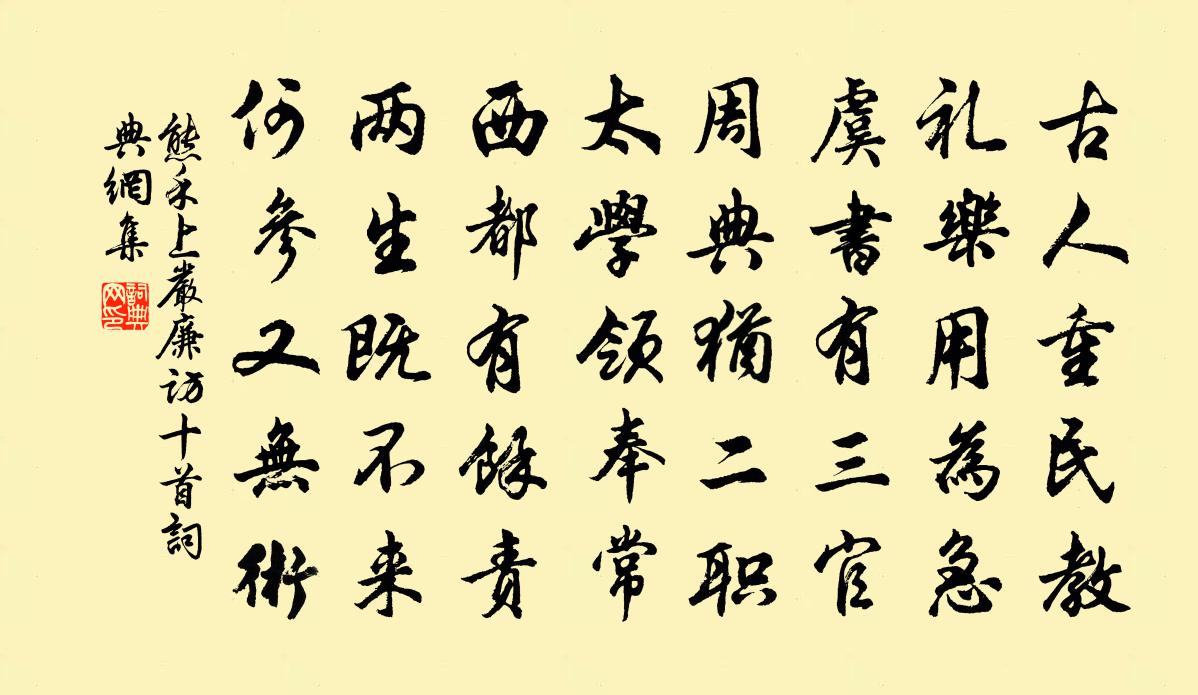 古人重民教
礼樂用為急
虞書有三官
周典猶二职
太學領奉常
西都有餘責
两生既不来
何参又無術
熊禾上嚴廉访十首詞
典網集
詞典
网印